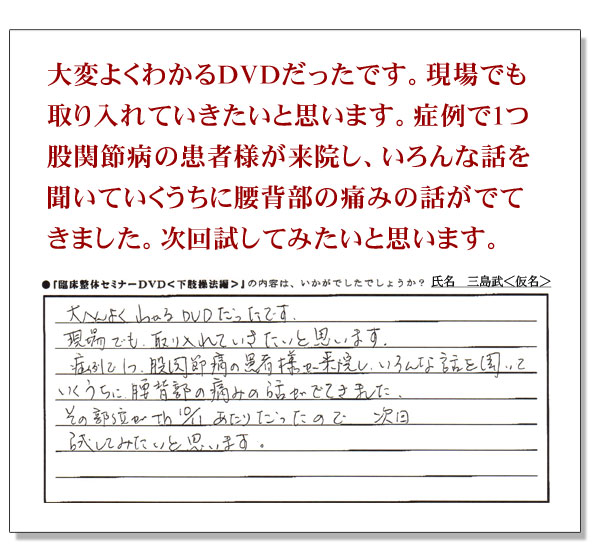 大変よくわかるDVDだったです。現場でも
取り入れていきたいと思います。症例で1つ
股関節病の患者様が来院し、いろんな話を
聞いていくうちに腰背部の痛みの話がでて
きました。次回試してみたいと思います。
●『臨床整体セミナーDVD＜下肢操法編＞』の内容は、いかがでしたでしょうか？ 氏名　三島武＜仮名＞
大へんよくわかるDVDだったです.
現場でも.取り入れていきたいと思います.
症例で1つ.股関節病の患者様が来院し.いろんな話を聞いて
いくうちに.腰背部の痛みの話がでてきました.
その部位がTh 10/11 あたりだったので 次回
試してみたいと思います。